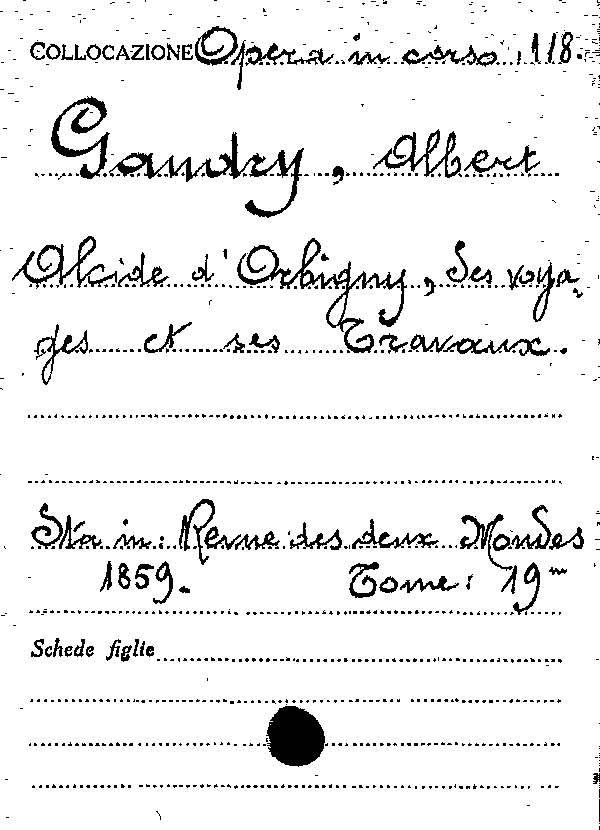 COLLOCAZIONE Opera in corso, 118.
Gaudry, Albert
Alcide d'Orbigny, Ses voya-
ges et ses Travaux.
Sta in: Revue des deux Mondes
1859. Tome: 19me
Schede figlie